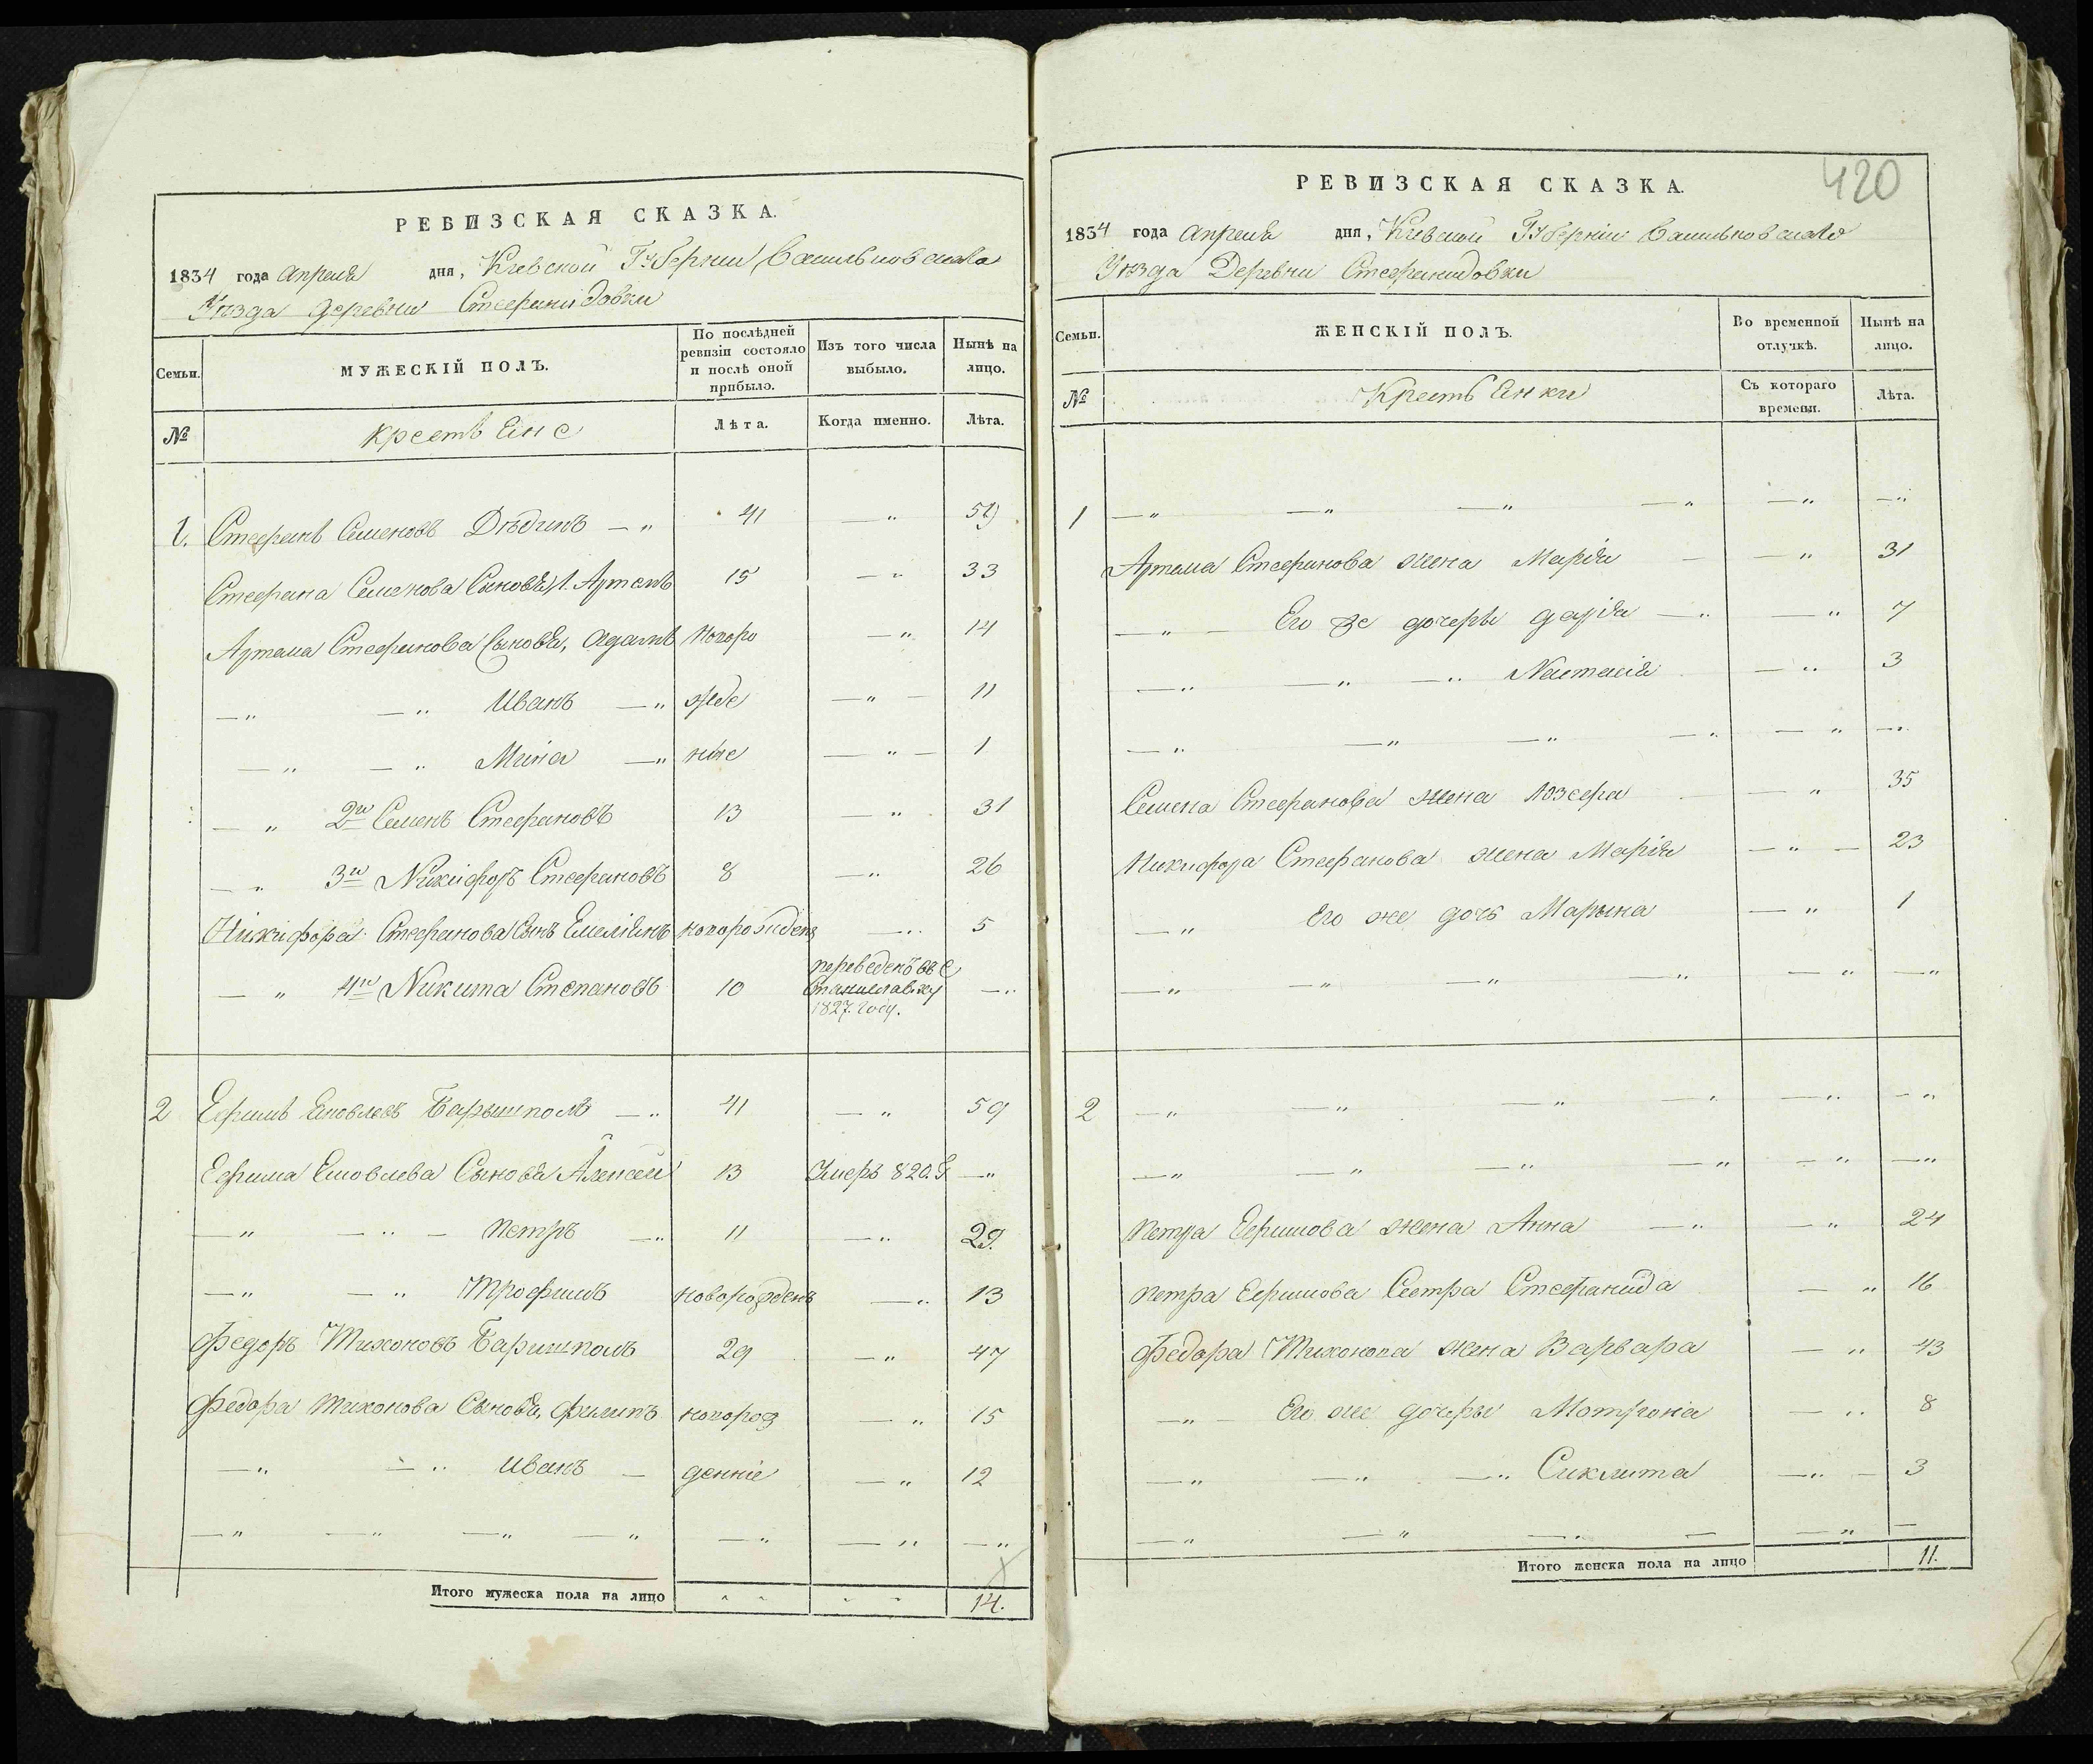 РЕВИЗСКАЯ СКАЗКА.
1834 года Апреля дня, Киевской Губернии Васильковскаго
Уезда деревни Стефанидовки
Семьи. МУЖЕСКІЙ ПОЛЪ. По послѣдней ревизіи состояло и послѣ оной прибыло. Изъ того числа выбыло. Нынѣ на лицо.
№ крестьяне Лѣта. Когда именно. Лѣта.
1. Стефанъ Семеновъ Дѣдикъ — „ 41 — „ 59
Стефана Семенова Сыновья, 1. Артемъ 15 — „ 33
Артема Стефанова Сыновья, Адамъ новоро — „ 14
— „ — „ Иванъ — „ жде — „ — 11
— „ — „ Мина — „ ные — „ — 1
— „ 2й Семенъ Стефановъ 13 — „ 31
— „ 3й Никифоръ Стефановъ 8 — „ 26
Никифора Стефанова Сынъ Емеліянъ новорожденъ — „ 5
— „ 4й Никита Степановъ 10 переведенъ въ с Станиславку 1827. году. — „
2 Ефимъ Яковлевъ Барышполъ — „ 41 — „ 59
Ефима Яковлева Сыновья Алексей 13 Умеръ 820. Г — „
— „ — „ — Петръ — „ 11 — „ 29.
— „ — „ Трофимъ новорожденъ — „ 13
Федоръ Тихоновъ Баришполъ 29 — „ 47
Федора Тихонова Сыновья, Филипъ новорож — „ 15
— „ — „ Иванъ — денніе — „ 12
— „ — „ — „ — „ — „ — „ — „
Итого мужеска пола на лицо „ „ „ „ 14.
420
РЕВИЗСКАЯ СКАЗКА.
1834 года Апреля дня, Киевской Губерніи Васильковскаго
Уезда Деревни Стефанидовки
Семьи. ЖЕНСКІЙ ПОЛЪ. Во временной отлучкѣ. Нынѣ на лицо.
№ Крестьянки Съ котораго времени. Лѣта.
1 — „ — „ — „ — „ — „ — „
Артема Стефанова жена Марія — — „ 31
— „ — Его же дочеры Дарія — „ — „ 7
— „ — „ — „ Настасія — „ 3
— „ — „ — „ — „ — „ — „
Семена Стефанова жена Юзефа — „ 35
Никифора Стефанова жена Марія — „ — 23
— „ Его же дочь Марына — „ 1
— „ — „ — „ — „ — „ — „
2 — „ — „ — „ — „ — „ — „
— „ — „ — „ — „ — „ — „
Петра Ефимова жена Анна — „ — „ 24
Петра Ефимова Сестра Стефанида — „ 16
Федора Тихонова жена Варвара — „ 43
— „ Его же дочеры Мотрона — „ 8
— „ — „ — „ Сиклита — „ — 3
— „ — „ — „ — — „ —
Итого женска пола на лицо 11.